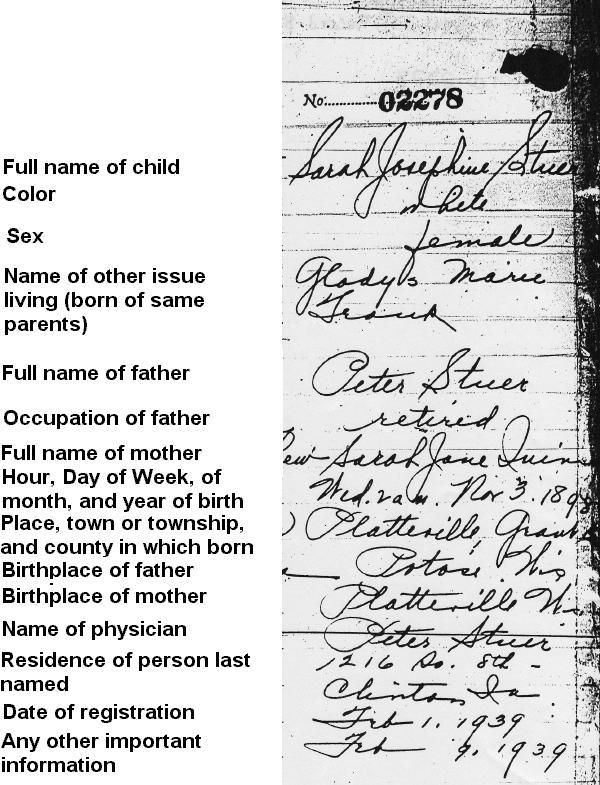 No. 02278
Full name of child Sarah Josephine Stuer
Color white
Sex female
Name of other issue Gladys Marie
living (born of same Frank
parents)
Full name of father Peter Stuer
Occupation of father retired
Full name of mother Sarah Jane Quin
Hour, Day of Week, of
month, and year of birth Wed. 2 a.m. Nov 3. 1898
Place, town or township, Platteville Grant
and county in which born
Birthplace of father Potosi Wis
Birthplace of mother Platteville Wis
Name of physician Peter Stuer
Residence of person last 1216 So. 8th -
named Clinton Ia
Date of registration Feb 1. 1939
Any other important Feb 9. 1939
information